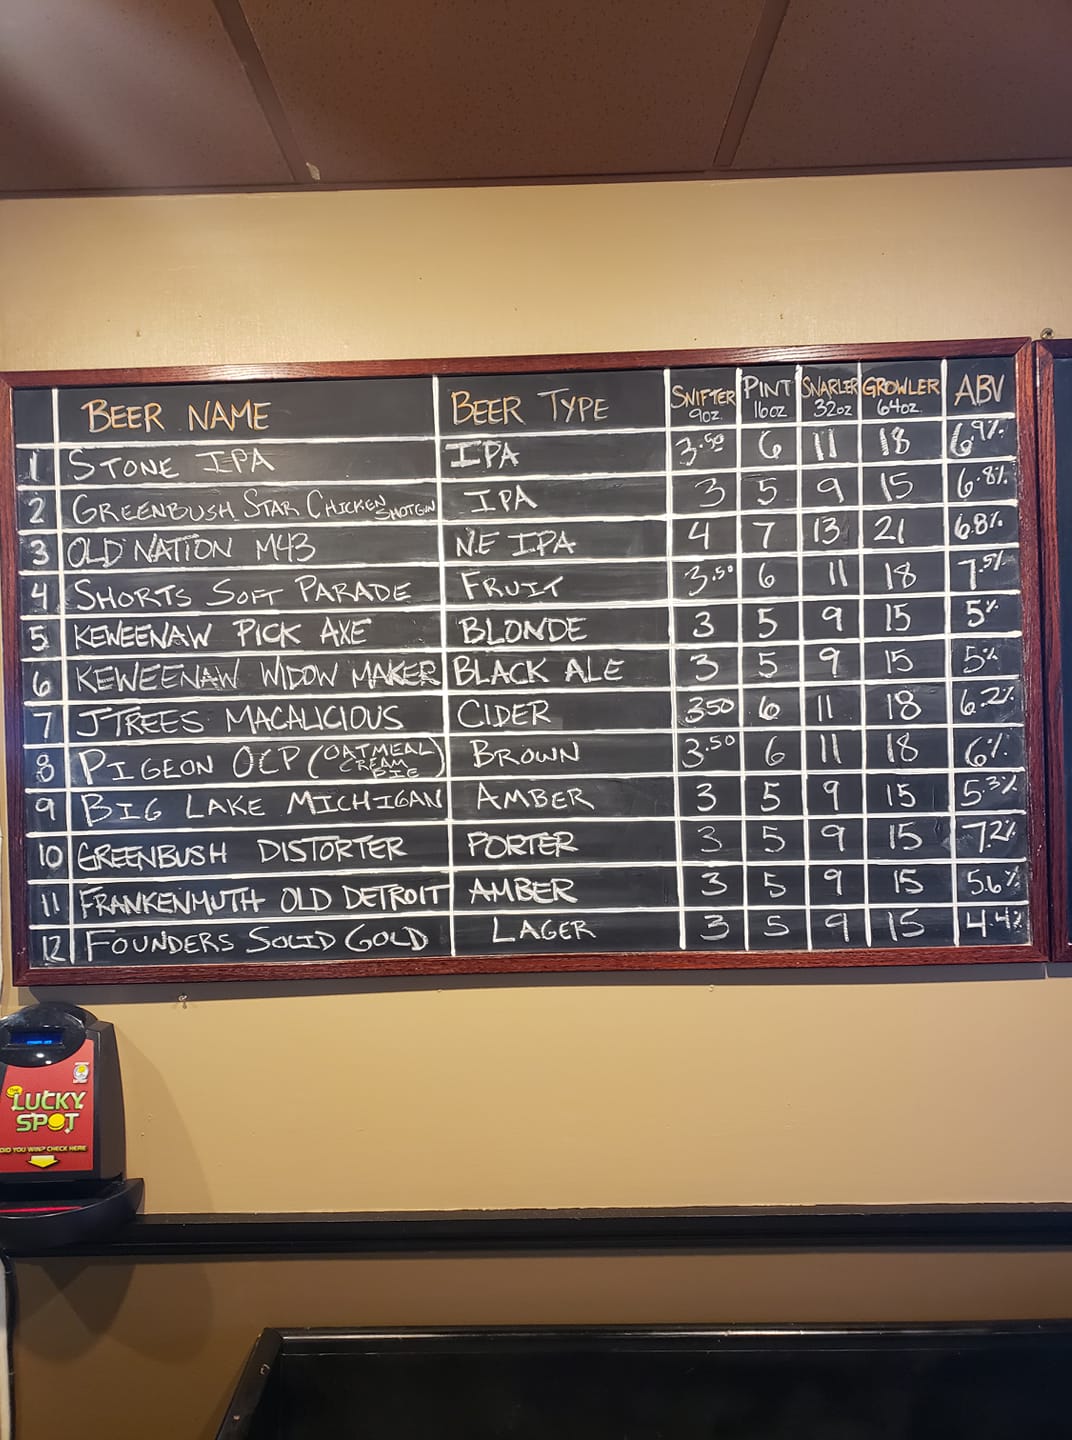 BEER NAME BEER TYPE SNIFTER 9oz. PINT 16oz SNARLER 32oz GROWLER 64oz. ABV
1 STONE IPA IPA 3.50 6 11 18 6.9%
2 GREENBUSH STAR CHICKEN SHOTGUN IPA 3 5 9 15 6.8%
3 OLD NATION M43 N.E IPA 4 7 13 21 6.8%
4 SHORTS SOFT PARADE FRUIT 3.50 6 11 18 7.5%
5 KEWEENAW PICK AXE BLONDE 3 5 9 15 5%
6 KEWEENAW WIDOW MAKER BLACK ALE 3 5 9 15 5%
7 JTREES MACALICIOUS CIDER 3.50 6 11 18 6.2%
8 PIGEON OCP (OATMEAL CREAM PIE) BROWN 3.50 6 11 18 6%
9 BIG LAKE MICHIGAN AMBER 3 5 9 15 5.3%
10 GREENBUSH DISTORTER PORTER 3 5 9 15 7.2%
11 FRANKENMUTH OLD DETROIT AMBER 3 5 9 15 5.6%
12 FOUNDERS SOLID GOLD LAGER 3 5 9 15 4.4%
THE
LUCKY
SPOT
DID YOU WIN? CHECK HERE